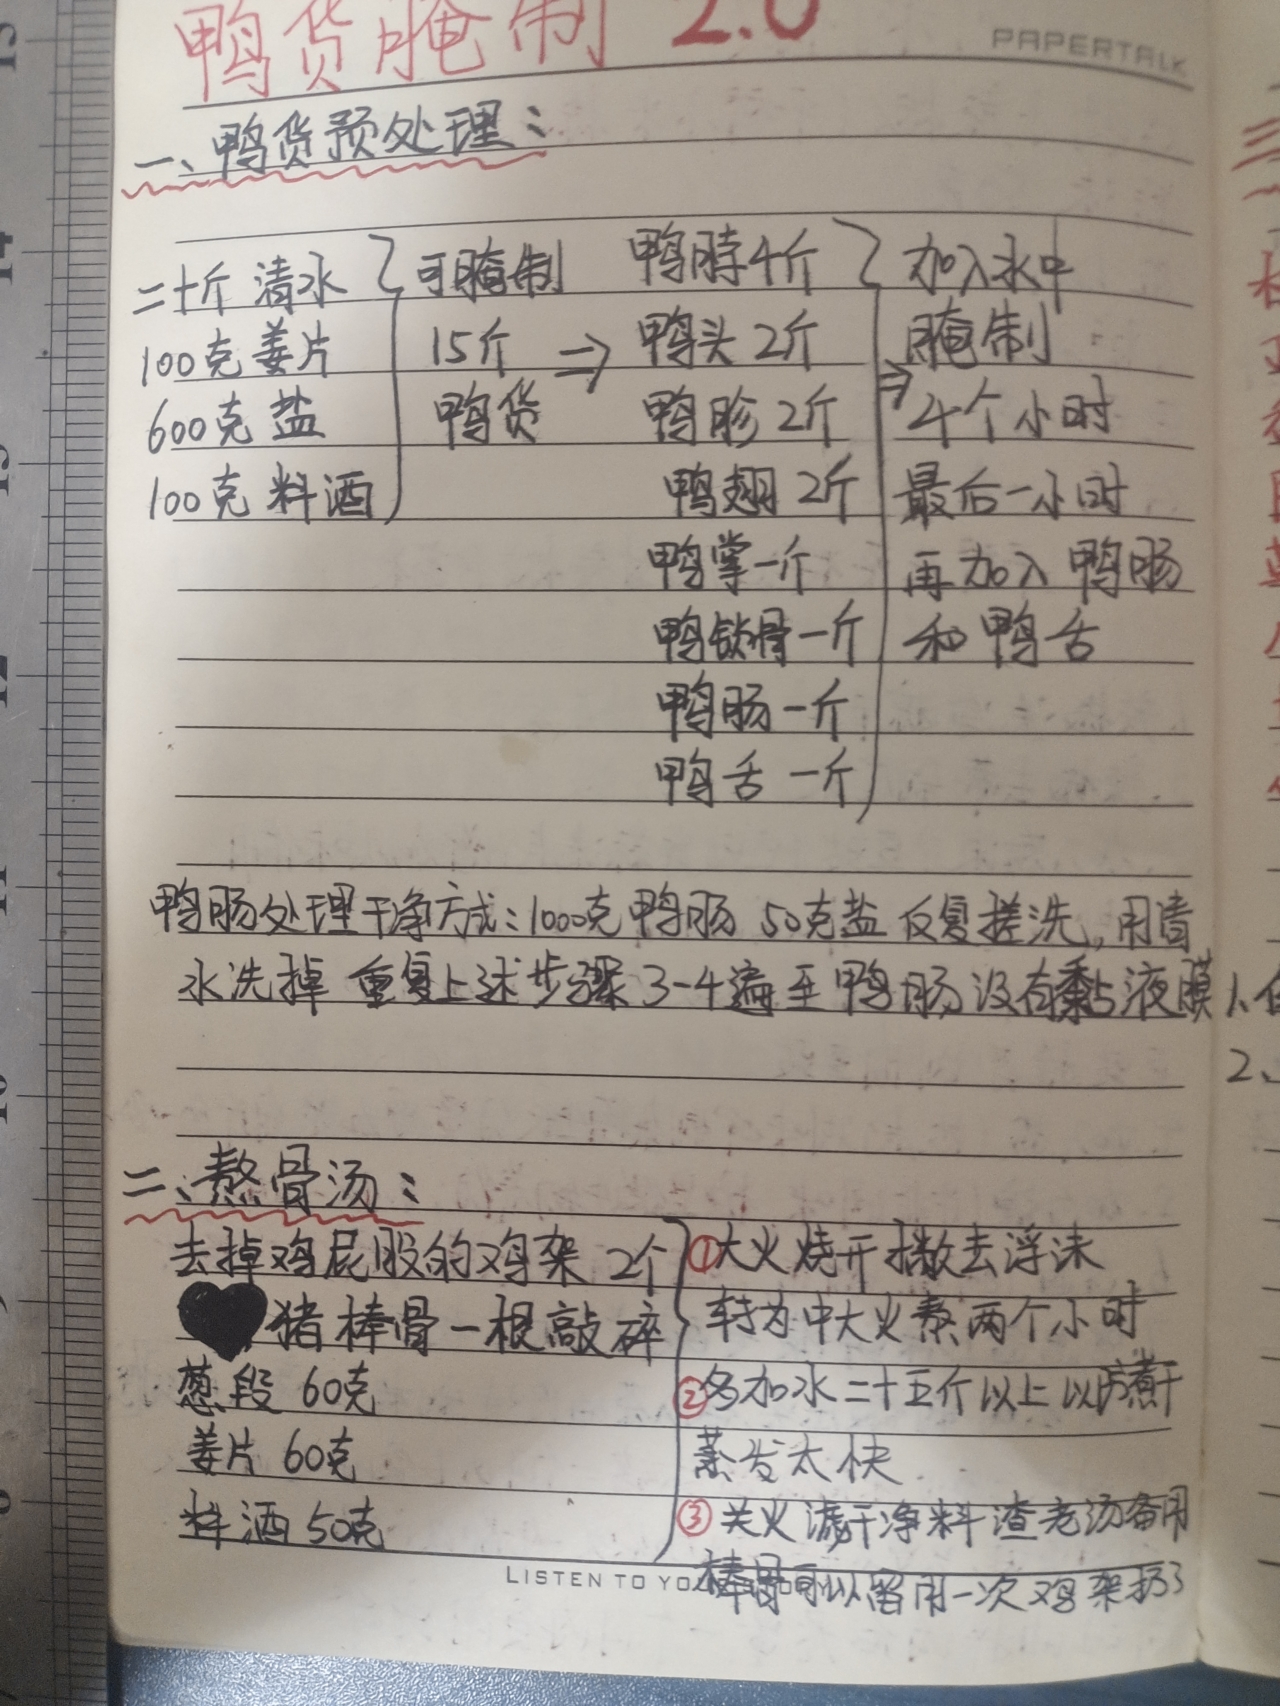 鸭货腌制 2.0
PAPERTALK
一、鸭货预处理:
二十斤 清水
100克姜片
600克 盐
100克 料酒
可腌制
15斤 ⇒
鸭货
鸭脖4斤
鸭头 2斤
鸭胗 2斤
鸭翅 2斤
鸭掌一斤
鸭锁骨一斤
鸭肠一斤
鸭舌 一斤
加入水中
⇒ 腌制
4个小时
最后一小时
再加入 鸭肠
和 鸭舌
鸭肠处理干净方式:1000克鸭肠 50克盐 反复搓洗,用清
水洗掉 重复上述步骤3-4遍至鸭肠没有黏液膜
二、熬骨汤:
去掉鸡屁股的鸡架 2个
猪棒骨一根敲碎
葱段 60克
姜片 60克
料酒 50克
①大火烧开撇去浮沫
转为中大火熬两个小时
②多加水二十五斤以上 以防煮干
蒸发太快
③关火滤干净料渣老汤备用
棒骨可以留用一次 鸡架扔了
LISTEN TO YO
三
1、
2、